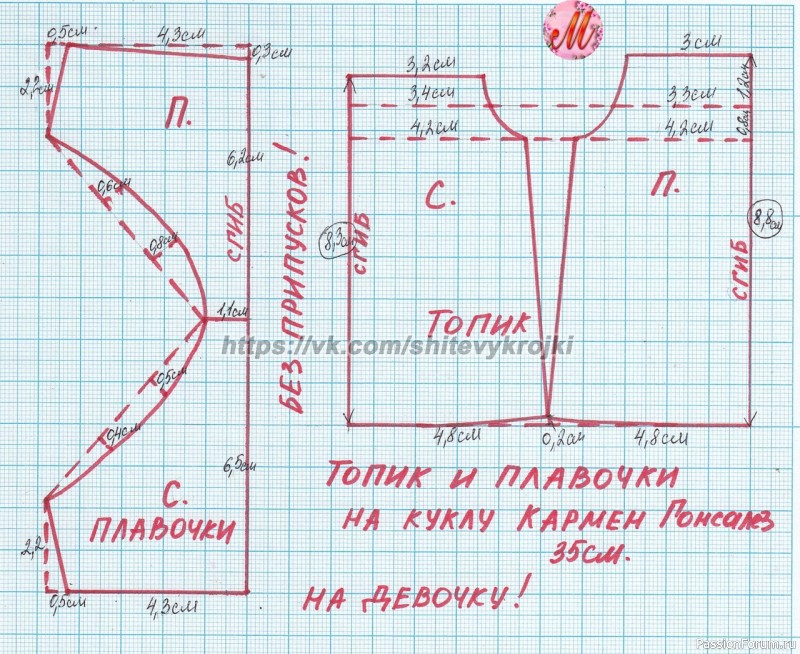 0,5см.
4,3см
0,3см
2,2см
П.
0,6см
0,8см
6,2см
СГИБ
1,1см
0,5см
0,4см
6,5см
С.
ПЛАВОЧКИ
2,2
0,5см
4,3см
БЕЗ ПРИПУСКОВ!
М
3,2см
3,4см
4,2см
С.
8,3см
СГИБ
3см
1,2см
3,3см
0,8см
4,2см
П.
8,8см
СГИБ
ТОПИК
https://vk.com/shitevykrojki
4,8см
0,2см
4,8см
ТОПИК И ПЛАВОЧКИ
НА КУКЛУ КАРМЕН Гонсалез
35см.
НА ДЕВОЧКУ!
PassionForum.ru